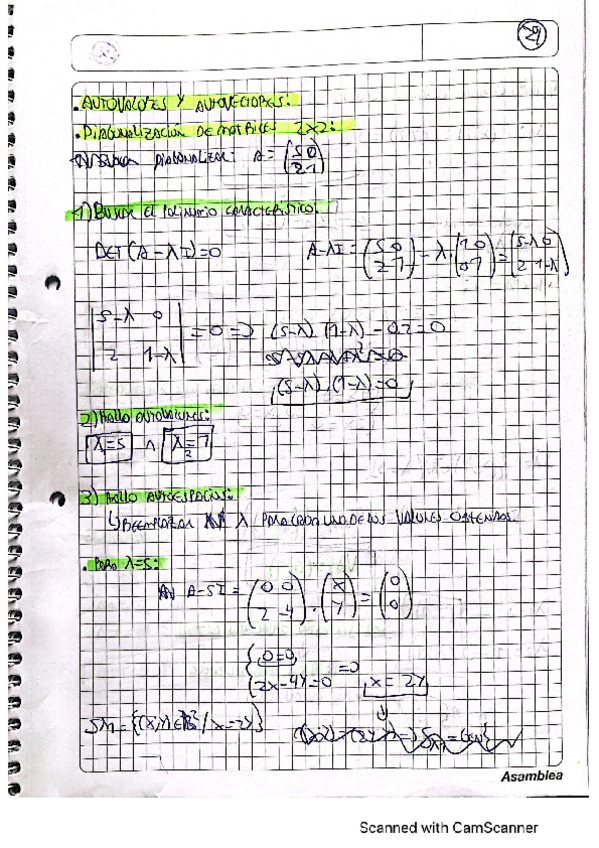 29
• AUTOVALORES Y AUTOVECTORES:
• DIAGONALIZACIÓN DE MATRICES 2x2:
DIAGONALIZAR: A = (5 0
2 1)
1) BUSCAR EL POLINOMIO CARACTERÍSTICO:
DET (A - λI) = 0    A - λI = (5 0 / 2 1) - λ. (1 0 / 0 1) = (5-λ 0 / 2 1-λ)
|5-λ 0|
|2 1-λ| = 0 => (5-λ).(1-λ) - 0.2 = 0
(5-λ).(1-λ) = 0
2) HALLO AUTOVALORES:
λ = 5 ∧ λ₂ = 1
3) HALLO AUTOESPACIOS:
↳ REEMPLAZAR λ PARA CADA UNO DE LOS VALORES OBTENIDOS.
• PARA λ=5:
A - 5I = (0 0 / 2 -4) . (x / y) = (0 / 0)
{0 = 0
{2x - 4y = 0 => x = 2y
= {(x,y) ∈ R² / x = 2y}
Asamblea
Scanned with CamScanner